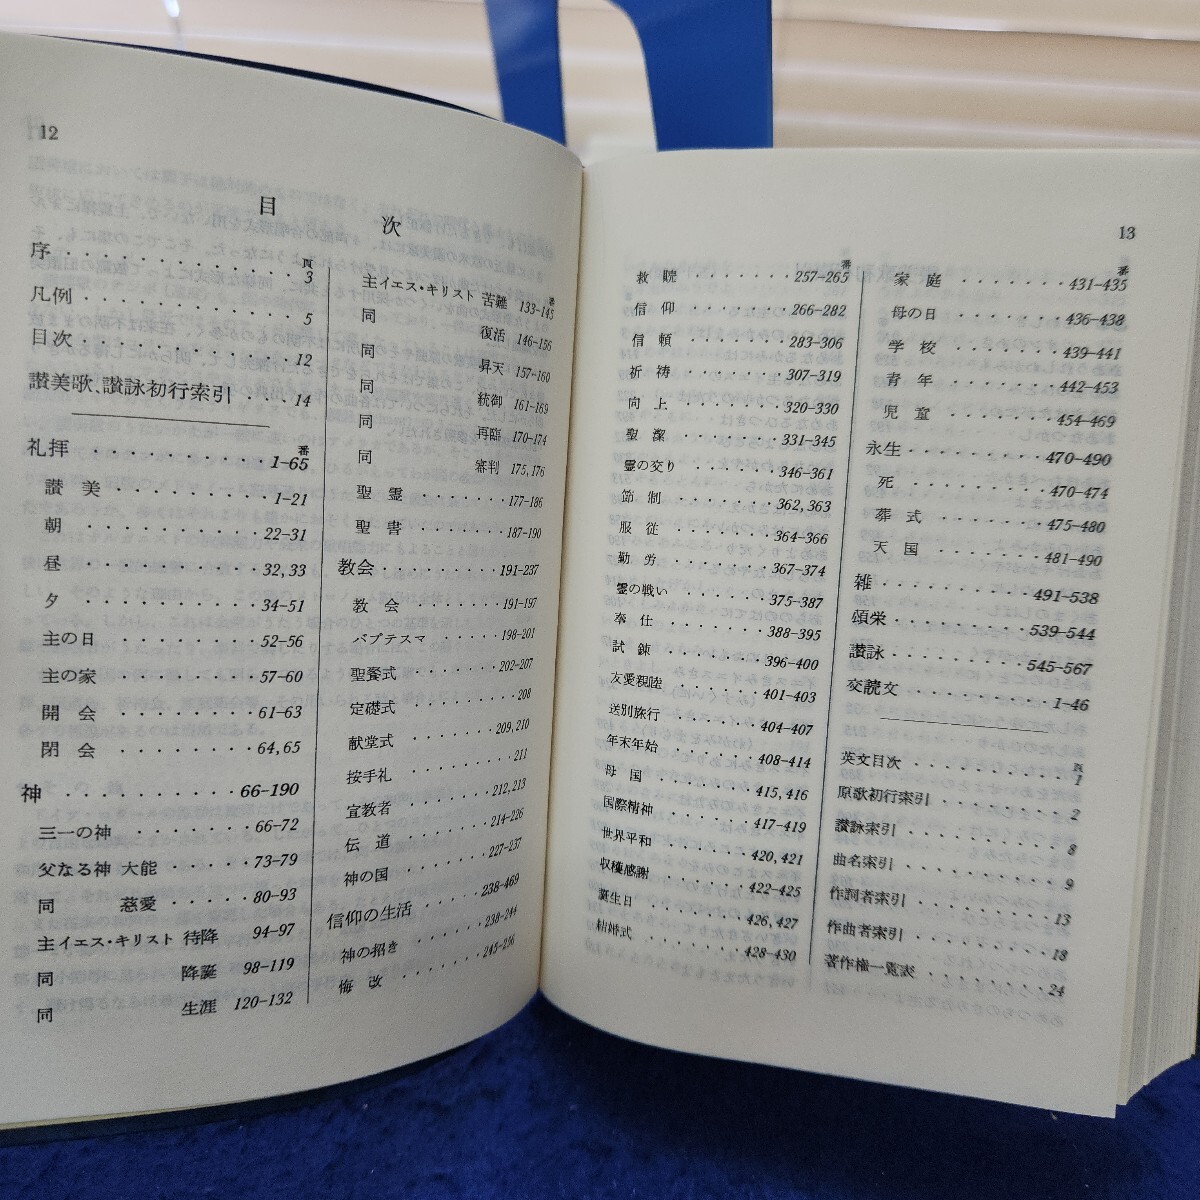 12
目次
頁
序 3
凡例 5
目次 12
讃美歌、讃詠初行索引 14
番
礼拝 1-65
讃美 1-21
朝 22-31
昼 32,33
夕 34-51
主の日 52-56
主の家 57-60
開会 61-63
閉会 64,65
神 66-190
三一の神 66-72
父なる神 大能 73-79
同 慈愛 80-93
主イエス・キリスト 待降 94-97
同 降誕 98-119
同 生涯 120-132
番
主イエス・キリスト 苦難 133-145
同 復活 146-156
同 昇天 157-160
同 統御 161-169
同 再臨 170-174
同 審判 175,176
聖霊 177-186
聖書 187-190
教会 191-237
教会 191-197
バプテスマ 198-201
聖餐式 202-207
定礎式 208
献堂式 209,210
按手礼 211
宣教者 212,213
伝道 214-226
神の国 227-237
信仰の生活 238-469
神の招き 238-244
悔改 245-256
13
番
救贖 257-265
信仰 266-282
信頼 283-306
祈祷 307-319
向上 320-330
聖潔 331-345
霊の交り 346-361
節制 362,363
服従 364-366
勤労 367-374
霊の戦い 375-387
奉仕 388-395
試錬 396-400
友愛親睦 401-403
送別旅行 404-407
年末年始 408-414
母国 415,416
国際精神 417-419
世界平和 420,421
収穫感謝 422-425
誕生日 426,427
結婚式 428-430
番
家庭 431-435
母の日 436-438
学校 439-441
青年 442-453
児童 454-469
永生 470-490
死 470-474
葬式 475-480
天国 481-490
雑 491-538
頌栄 539-544
讃詠 545-567
交読文 1-46
頁
英文目次 1
原歌初行索引 2
讃詠索引 8
曲名索引 9
作詞者索引 13
作曲者索引 18
著作権一覧表 24